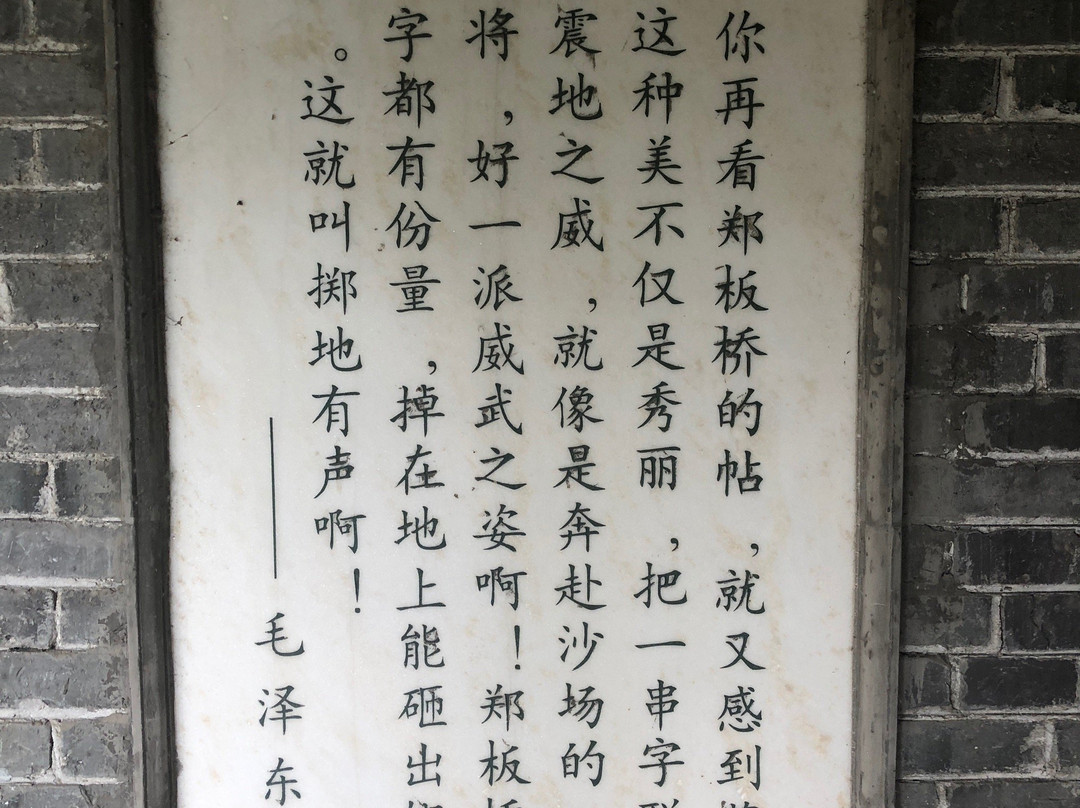 你再看郑板桥的帖，就又感到
这种美不仅是秀丽，把一串字
震地之威，就像是奔赴沙场的
将，好一派威武之姿啊！郑板
字都有份量，掉在地上能砸出
。这就叫掷地有声啊！
——毛泽东